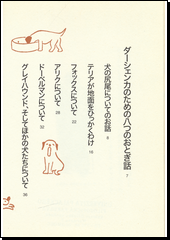 ダーシェンカのための八つのおとぎ話 7
犬の尻尾についてのお話 8
テリアが地面をひっかくわけ 16
フォックスについて 22
アリクについて 28
ドーベルマンについて 32
グレイハウンド、そしてほかの犬たちについて 38